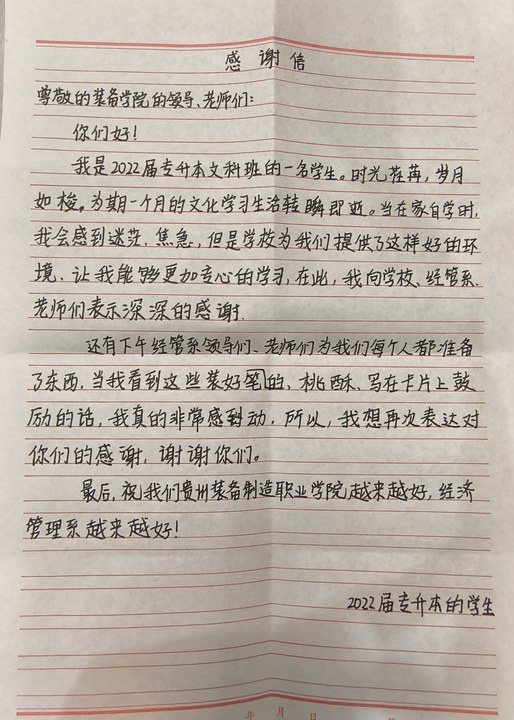 感谢信
尊敬的装备学院的领导、老师们:
你们好!
我是2022届专升本文科班的一名学生。时光荏苒,岁月
如梭。为期一个月的文化学习生活转瞬即逝。当在家自学时,
我会感到迷茫、焦急,但是学校为我们提供了这样好的环
境、让我能够更加专心的学习,在此,我向学校、经管系、
老师们表示深深的感谢.
还有下午经管系领导们、老师们为我们每个人都准备
了东西,当我看到这些装好笔的,桃酥、写在卡片上鼓
励的话,我真的非常感到动,所以,我想再次表达对
你们的感谢,谢谢你们。
最后,祝我们贵州装备制造职业学院越来越好,经济
管理系越来越好!
2022届专升本的学生
年 月 日